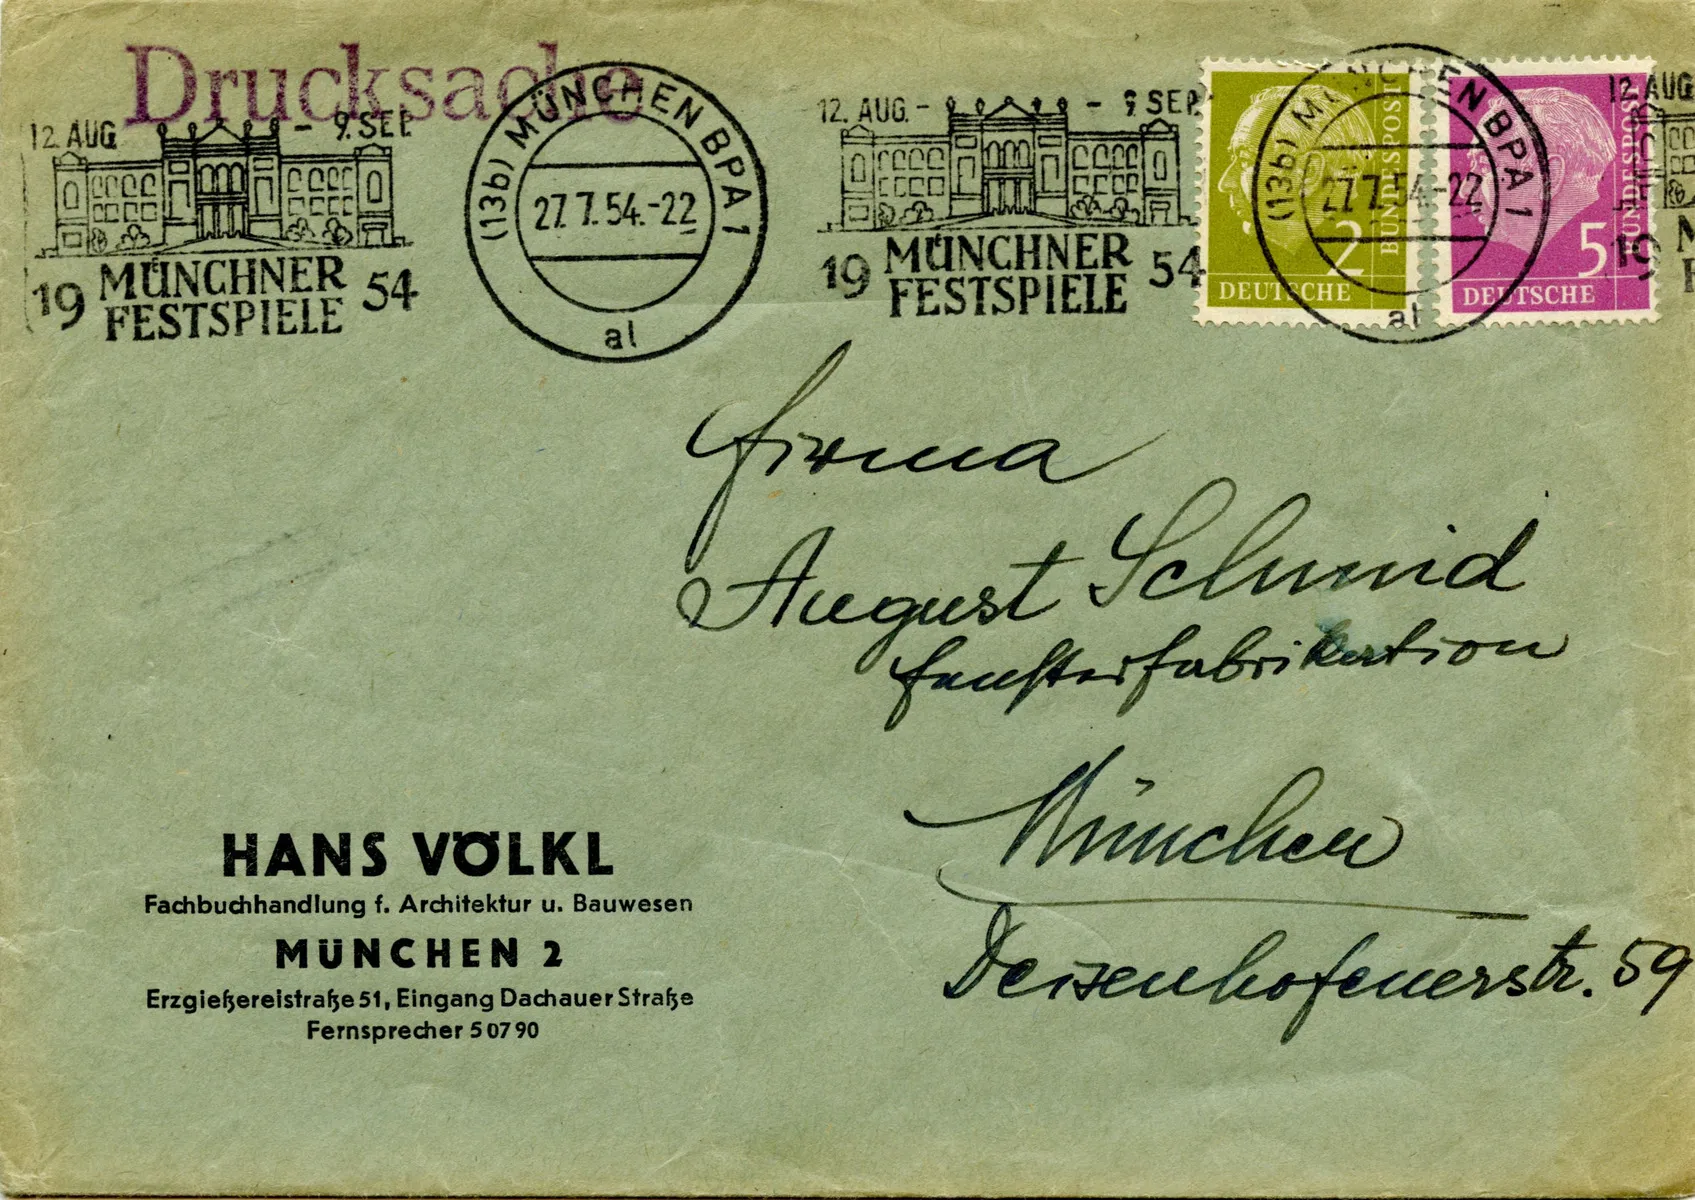 Drucksache
12. AUG. - 9. SEP.
1954
MÜNCHNER
FESTSPIELE
(13b) MÜNCHEN BPA 1
27.7.54.-22
al
12. AUG. - 9. SEP.
1954
MÜNCHNER
FESTSPIELE
2
BUNDESPOST
DEUTSCHE
5
BUNDESPOST
DEUTSCHE
(13b) MÜNCHEN BPA 1
27.7.54.-22
al
12. AUG
19
Firma
August Schmid
Fensterfabrikation
München
Deisenhofenerstr. 59
HANS VÖLKL
Fachbuchhandlung f. Architektur u. Bauwesen
MÜNCHEN 2
Erzgießereistraße 51, Eingang Dachauer Straße
Fernsprecher 5 07 90